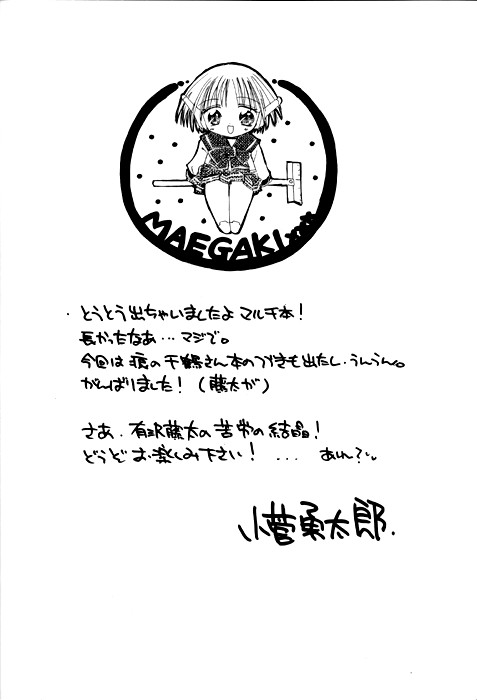 MAEGAKI
・とうとう出ちゃいましたよマルチ本！
長かったなあ…マジで。
今回は痕の千鶴さん本のつづきも出たし、うんうん。
がんばりました！（藤太が）
さあ、有沢藤太の苦労の結晶！
どうぞお楽しみ下さい！...あれ？
小菅勇太郎.